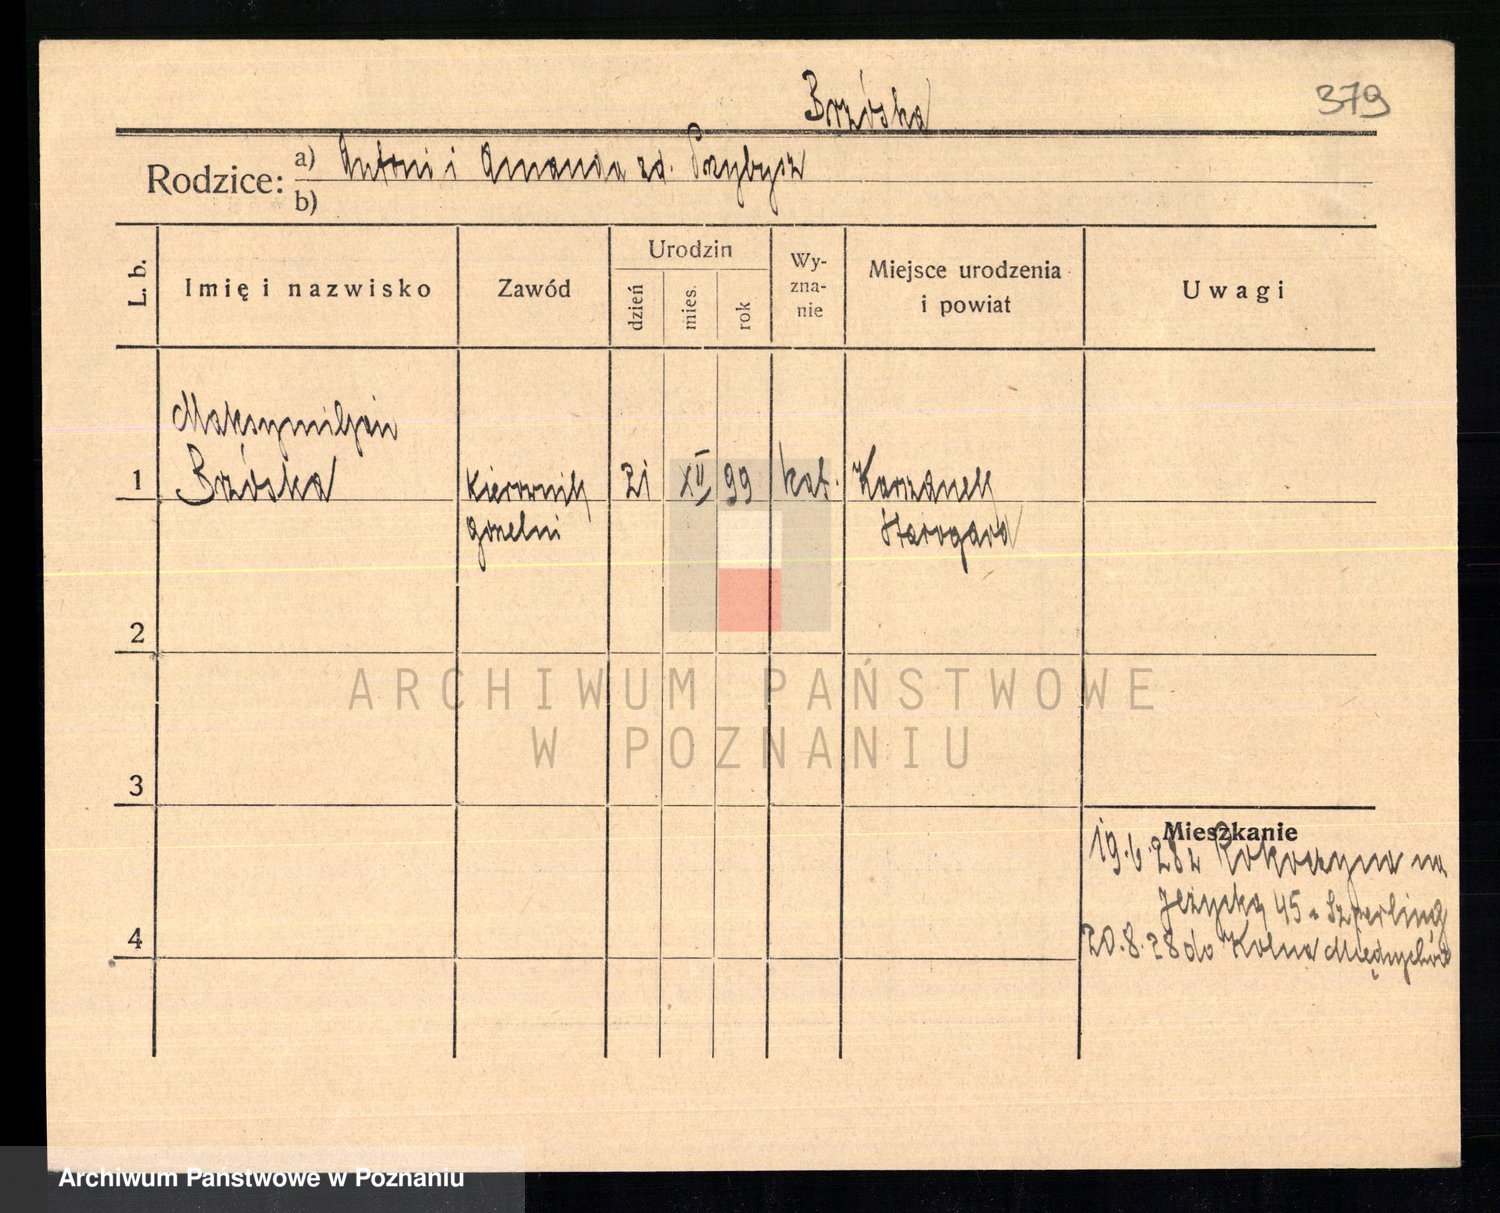 Brzóska
379
Rodzice: a) Antoni i Amanda zd. Przybysz
b)
L. b. Imię i nazwisko Zawód Urodzin dzień mies. rok Wy-zna-nie Miejsce urodzenia i powiat Uwagi
Maksymiljan
1 Brzóska kierownik 21 XII 99 kat.
gorzelni Starogard
2
ARCHIWUM PAŃSTWOWE
W POZNANIU
3
Mieszkanie
19.6.28 z Rokoczyna na
Jeżycką 45 Szperling
4
20.8.28 do Kolna Międzychód
Archiwum Państwowe w Poznaniu